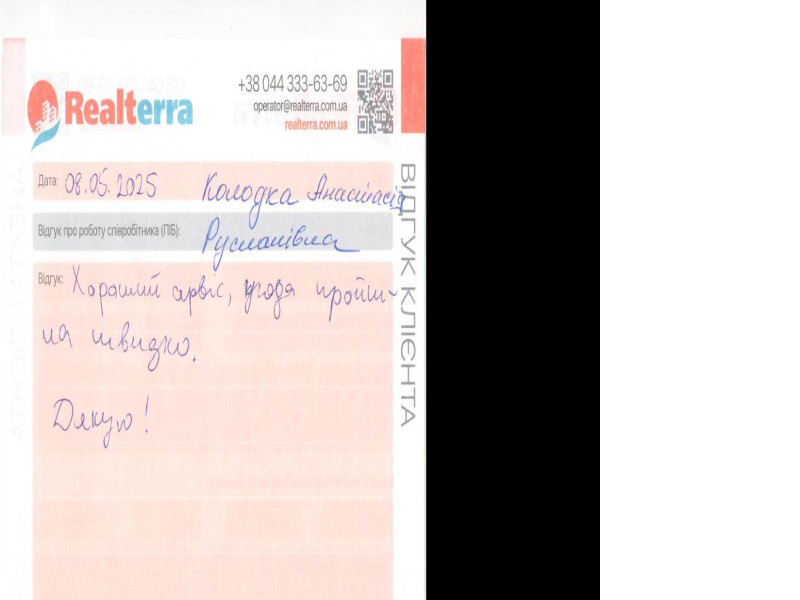 Realterra
+38 044 333-63-69
operator@realterra.com.ua
realterra.com.ua
Дата: 08.05.2025 Колодка Анастасія
Відгук про роботу співробітника (ПІБ): Русланівна
Відгук: Хороший сервіс, угода пройш-
ла швидко.
Дякую!
ВІДГУК КЛІЄНТА